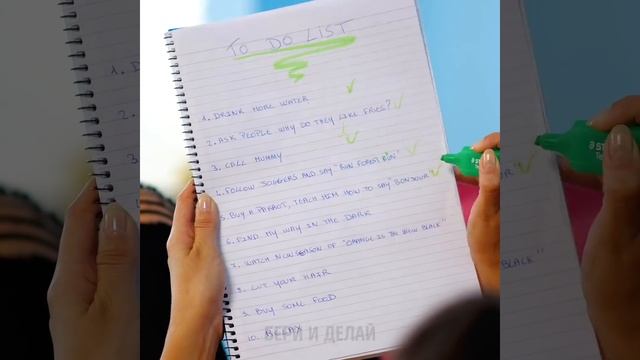 TO DO LIST
1. DRINK MORE WATER
2. ASK PEOPLE WHY DO THEY LIKE FRIES?
3. CALL MUMMY
4. FOLLOW JOGGERS AND SAY "RUN FOREST RUN"
5. BUY A PARROT, TEACH HIM HOW TO SAY "BONJOUR"
6. FIND MY WAY IN THE DARK
7. WATCH NEW SEASON OF "ORANGE IS THE NEW BLACK"
8. CUT YOUR HAIR
9. BUY SOME FOOD
10. RELAX
БЕРИ И ДЕЛАЙ